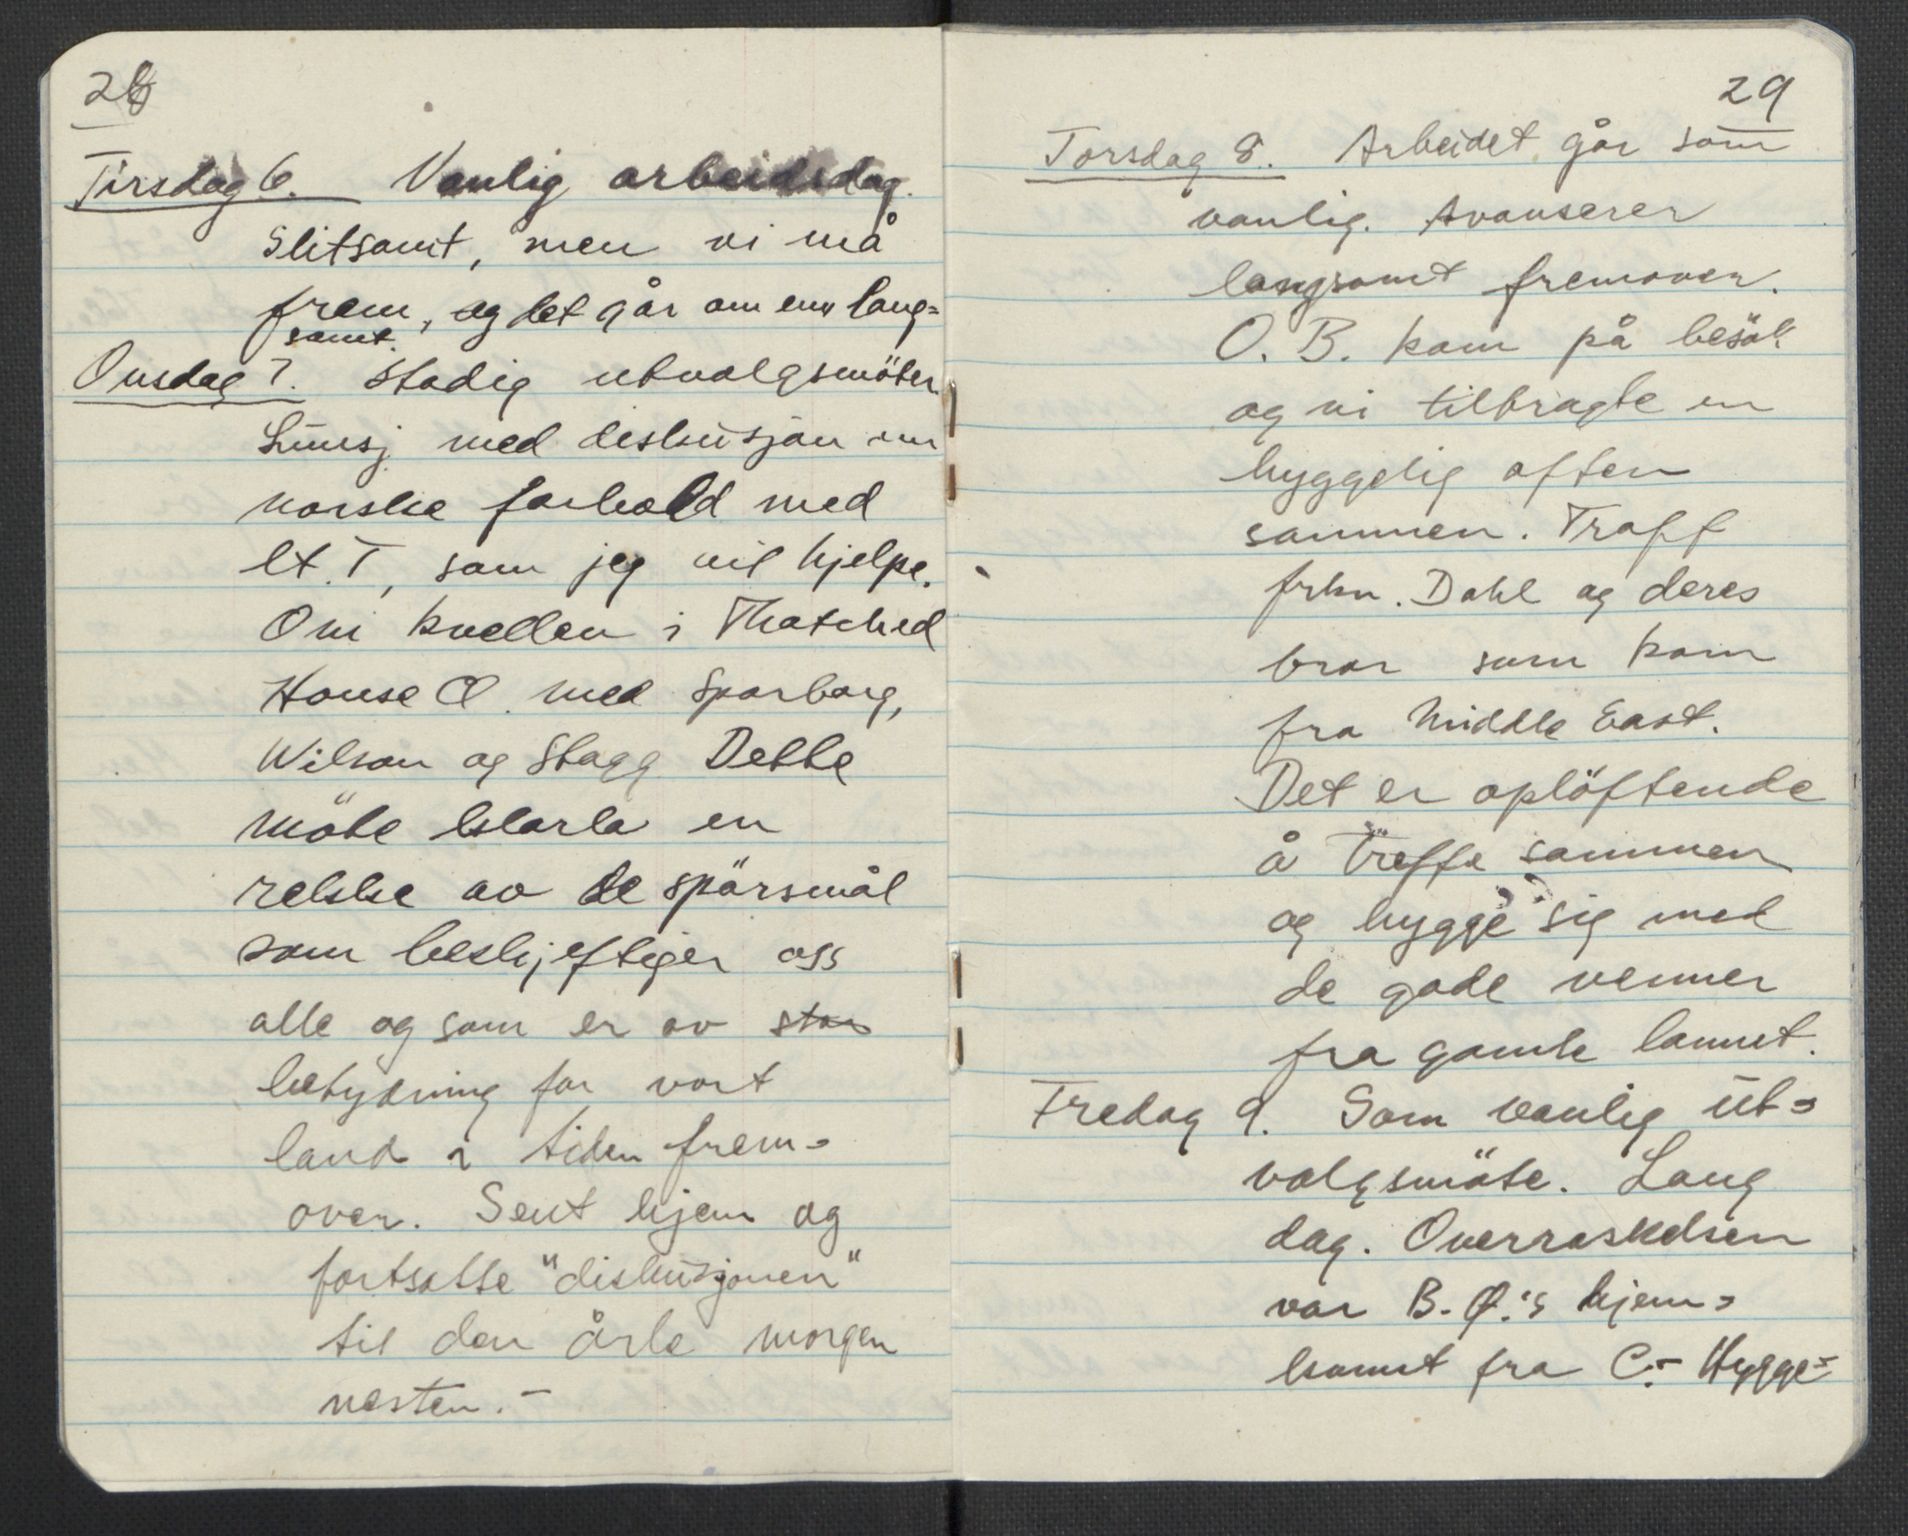 28
Tirsdag 6. Vanlig arbeidsdag.
Slitsomt, men vi må
frem, og det går om enn lang=
somt.
Onsdag 7. Stadig utvalgsmöter.
Lunsj med diskusjon om
norske forhold med
lt. T, som jeg vil hjelpe.
Om kvellen i Thatched
House Cl. med Sporborg,
Wilson og Stagg Dette
möte klarla en
rekke av de spörsmål
som beskjeftiger oss
alle og som er av stor
betydning for vort
land i tiden frem=
over. Sent hjem og
fortsatte "diskusjonen"
til den årle morgen
nesten.-
29
Torsdag 8. Arbeidet går som
vanlig. Avanserer
langsomt fremover.
O. B. kom på besök
og vi tilbragte en
hyggelig aften
sammen. Traff
frkn. Dahl og deres
bror som kom
fra Middle East.
Det er oplöftende
å treffe sammen
og hygge sig med
de gode venner
fra gamle lannet.
Fredag 9. Som vanlig ut=
valgsmöte. Lang
dag. Overraskelsen
var B. Ø.'s hjem=
komst fra C.- Hygge=